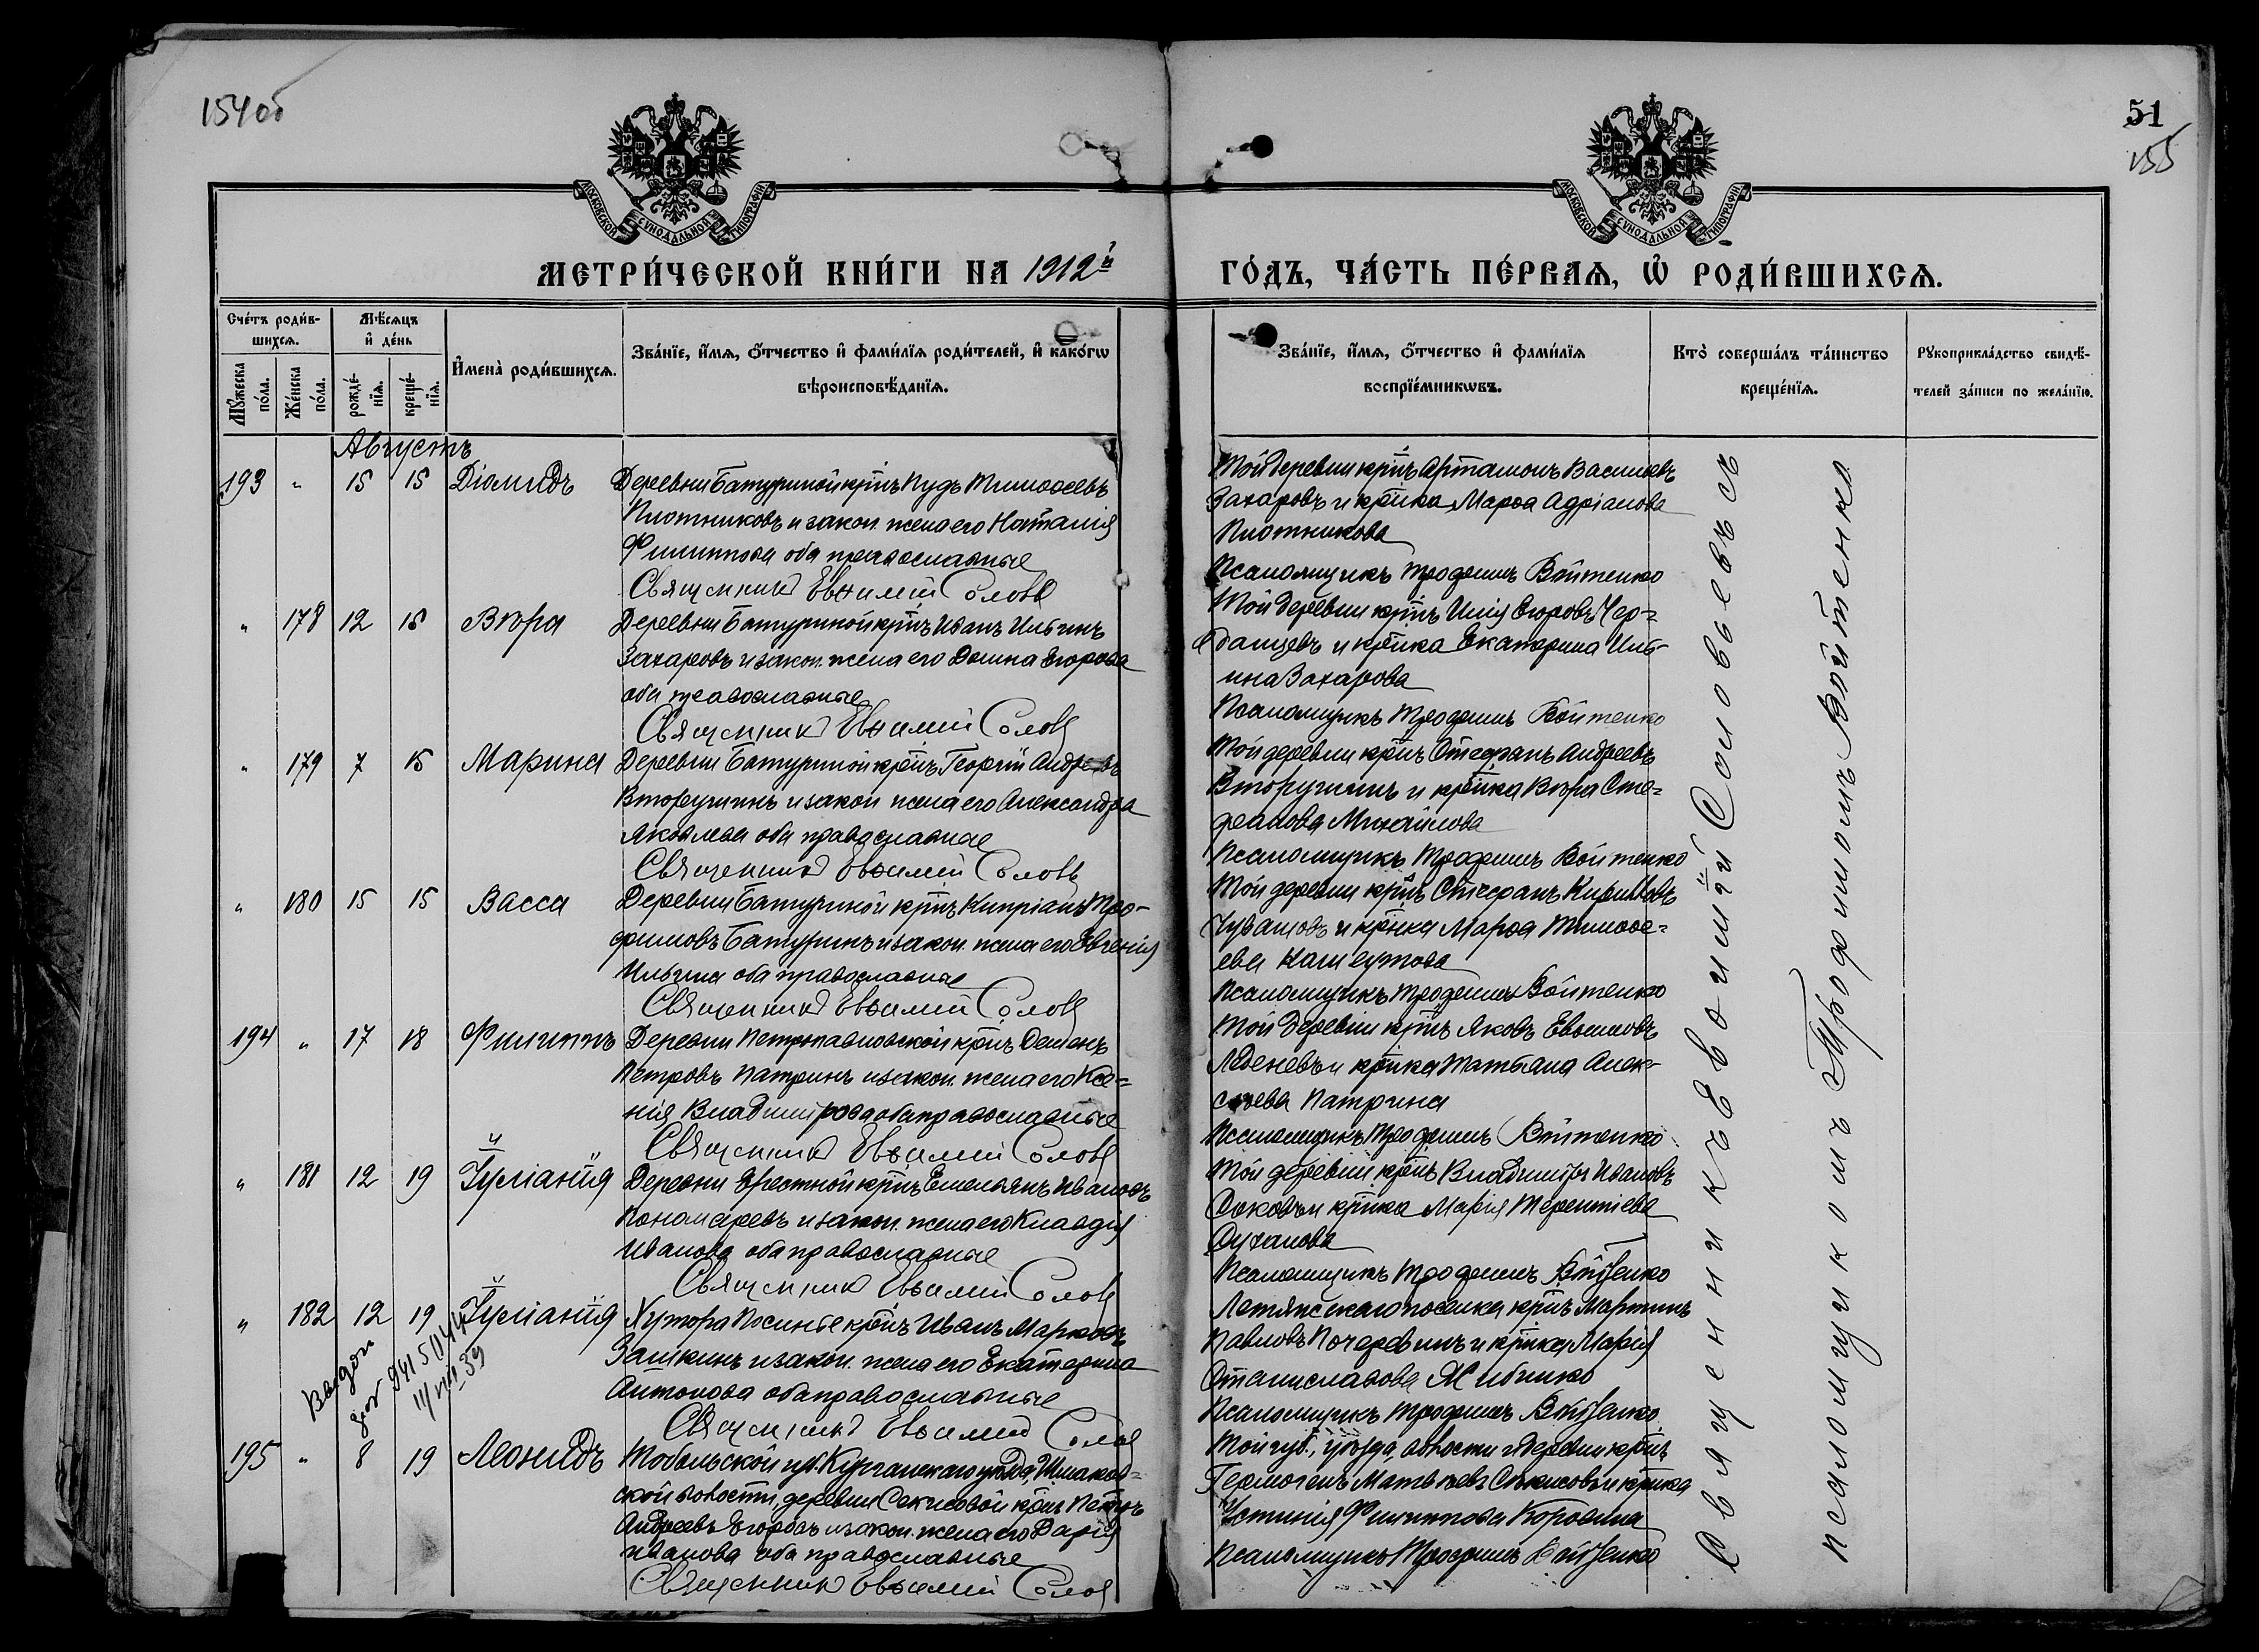 154об
51
155
МОСКОВСКОЙ СУНОДАЛЬНОЙ ТИПОГРАФІИ
МОСКОВСКОЙ СУНОДАЛЬНОЙ ТИПОГРАФІИ
МЕТРИ́ЧЕСКОЙ КНИ́ГИ НА 1912й
ГО́ДЪ, ЧА́СТЬ ПЕ́РВАѦ, Ѡ҆ РОДИ́ВШИХСѦ.
Сче́тъ роди́в-
шихсѧ.
Мѣ́сѧцъ
и҆ де́нь
Мꙋ́жеска по́ла.
Же́нска по́ла.
рожде́-
нїѧ.
креще́-
нїѧ.
И҆мена̀ роди́вшихсѧ.
Зва́нїе, и҆́мѧ, ѻ҆́тчество и҆ фами́лїѧ роди́телей, и҆ како́гѡ
вѣроисповѣ́данїѧ.
Зва́нїе, и҆́мѧ, ѻ҆́тчество и҆ фами́лїѧ
воспрїе́мникѡвъ.
Кто̀ соверша́лъ та́инство
креще́нїѧ.
Рꙋкоприкла́дство свидѣ́-
телей за́писи по жела́нїю.
Августъ
193 " 15 15 Діомидъ Деревни Батуриной крнъ Пудъ Тимоѳеевъ
Плотниковъ и закон. жена его Наталія
Филиппова оба православные
Священникъ Евѳимій Солов
Той деревни крнъ Артамонъ Васильевъ
Захаровъ и крнка Марѳа Адріанова
Плотникова
Псаломщикъ Трофимъ Войтенко
" 178 12 15 Вѣра Деревни Батуриной крнъ Иванъ Ильинъ
Захаровъ и закон. жена его Домна Егорова
оба православные
Священникъ Евѳимій Солов
Той деревни крнъ Илія Егоровъ Чер-
данцевъ и крнка Екатерина Иль-
ина Захарова
Псаломщикъ Трофимъ Войтенко
" 179 7 15 Марина Деревни Батуриной крнъ Георгій Андреевъ
Вторушинъ и закон жена его Александра
Яковлева оба православные
Священникъ Евѳимій Солов
Той деревни крнъ Стефанъ Андреевъ
Вторушинъ и крнка Вѣра Сте-
фанова Михайлова
Псаломщикъ Трофимъ Войтенко
" 180 15 15 Васса Деревни Батуриной крнъ Кипріанъ Тро-
фимовъ Батуринъ и закон. жена его Евгенія
Ильина оба православные
Священникъ Евѳимій Солов
Той деревни крнъ Стефанъ Кириловъ
Чувашовъ и крнка Марѳа Тимоѳе-
ева
Псаломщикъ Трофимъ Войтенко
194 " 17 18 Филиппъ Деревни Петропавловской крнъ Семенъ
Петровъ Патринъ и закон. жена его Ксе-
нія Владимірова оба православные
Священникъ Евѳимій Солов
Той деревни крнъ Яковъ Евѳимовъ
Леденевъ и крнка Татьяна Алек-
сѣева Патрина
Псаломщикъ Трофимъ Войтенко
" 181 12 19 Іуліанія Деревни крнъ Емельянъ Ивановъ
Пономаревъ и закон. жена его Клавдія
Иванова оба православные
Священникъ Евѳимій Солов
Той деревни крнъ Владиміръ Ивановъ
Соковъ и крнка Марія Терентіева
Суханова
Псаломщикъ Трофимъ Войтенко
" 182 12 19 Іуліанія Хутора крнъ Иванъ Марковъ
Зашкинъ и закон. жена его Екатерина
Антонова оба православные
Священникъ Евѳимій Солов
поселка крнъ Мартинъ
Павловъ и крнка Марія
Станиславова
Псаломщикъ Трофимъ Войтенко
195 " 8 19 Леонидъ Тобольской губ. Курганскаго уѣзда, Шмаков-
ской волости, деревни Секисовой крнъ Петръ
Андреевъ Егоровъ и закон. жена его Дарія
Иванова оба православные
Священникъ Евѳимій Солов
Той губ., уѣзда, волости и деревни крнъ
Гермогенъ Матвѣевъ Секисовъ и крнка
Устинія Филиппова Коровина
Псаломщикъ Трофимъ Войтенко
Священникъ Евѳимій Соловьевъ съ
псаломщикомъ Трофимомъ Войтенко